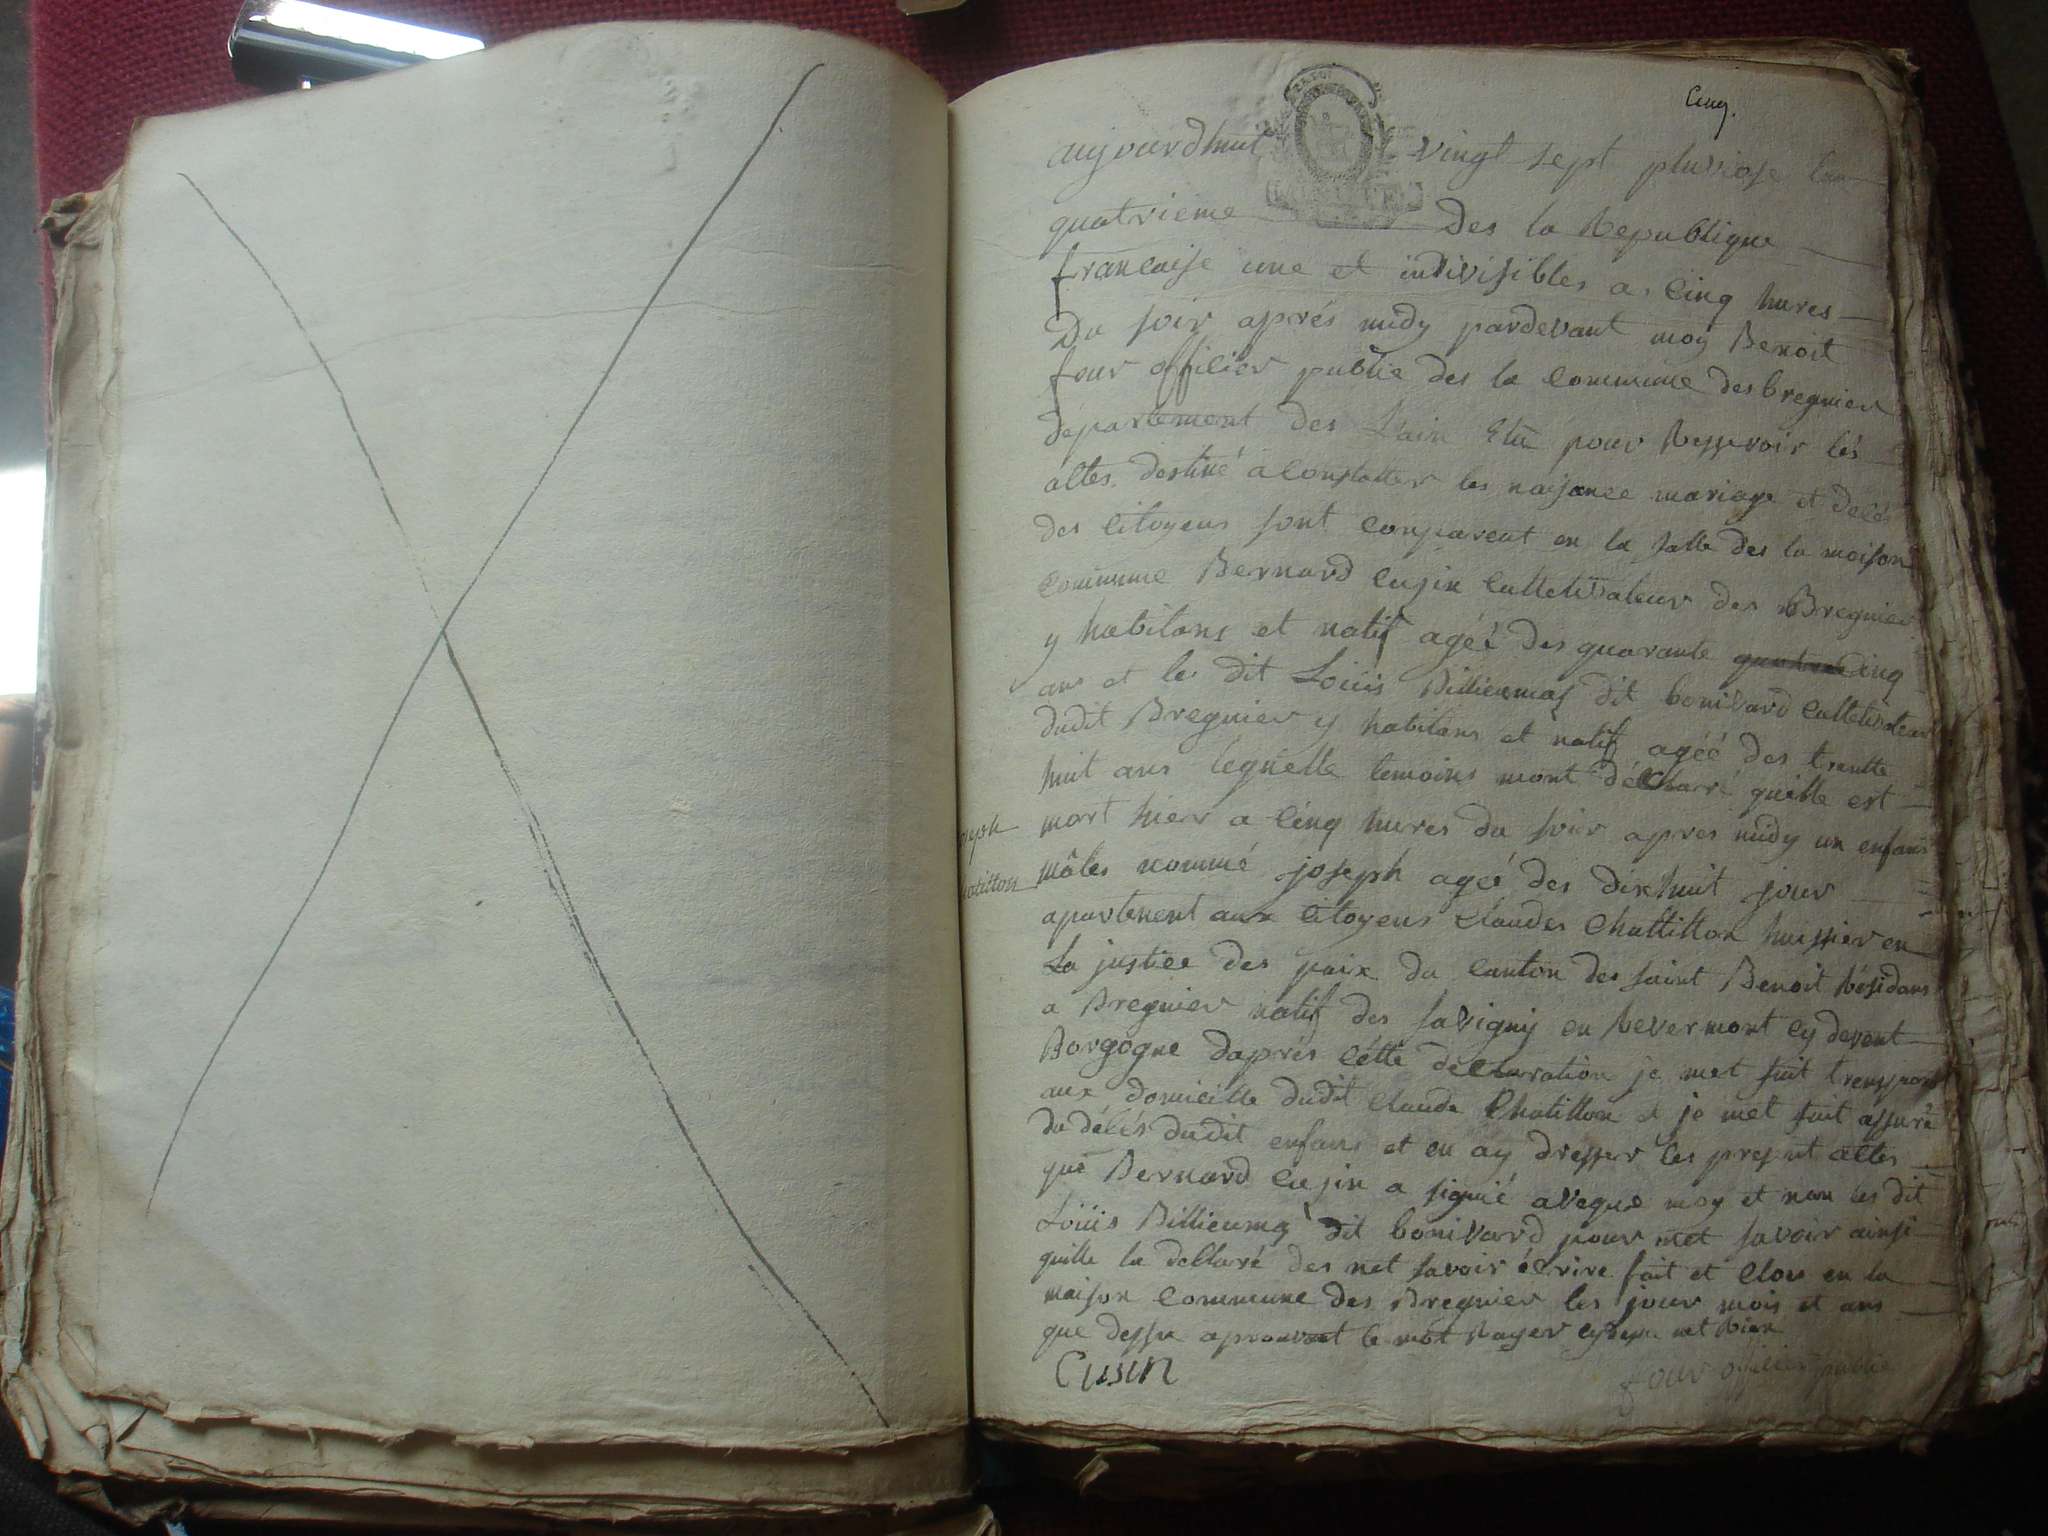 Cinq.
aujourdhuit vingt sept pluviose lan
quatrieme Des la Republique
francaise une et indivisibles a cinq hures
Du soir aprés midy pardevant moy Benoit
four officier public des la commune des bregnier
département des Lain Elu pour Ressevoir lés
actes destiné a constatter les naisance mariage et décé
des citoyens sont comparent en la salle des la maison
commune Bernard cusin culletivateur des Bregnier
y habitans et natif agéé des quarante cinq
ans et les dit Loüis Billiemas dit bonivard culletivateur
dudit Bregnier y habitans et natif agéé des trentte
huit ans léquelle temoins mont déclharré quille est
mort hier a cinq hures du soir apres midy un enfans
joseph
mâles nommé joseph agéé des dixhuit jour
chatillon
apartenent aux citoyens Claudes Chattillon huissier en
La justice des paix du canton des saint Benoit Résidans
a Bregnier natif des savigny en Revermont cy devent
Borgogne daprés cétte déclaration je met suit transport
aux domicille dudit Claude Chatillon et je met suit assuré
du décés dudit enfans et en ay dresser les present actes
que Bernard Cusin a signié aveque moy et non les dit
Loüis Billiemas dit bonivard pour net savoir ainsi
quille la decllaré des net savoir écrire fait et Clos en la
maison Commune des Bregnier les jour mois et ans
que dessu aprouvant le mot Rayer cy dessu net Rien
Cusin
four officier public